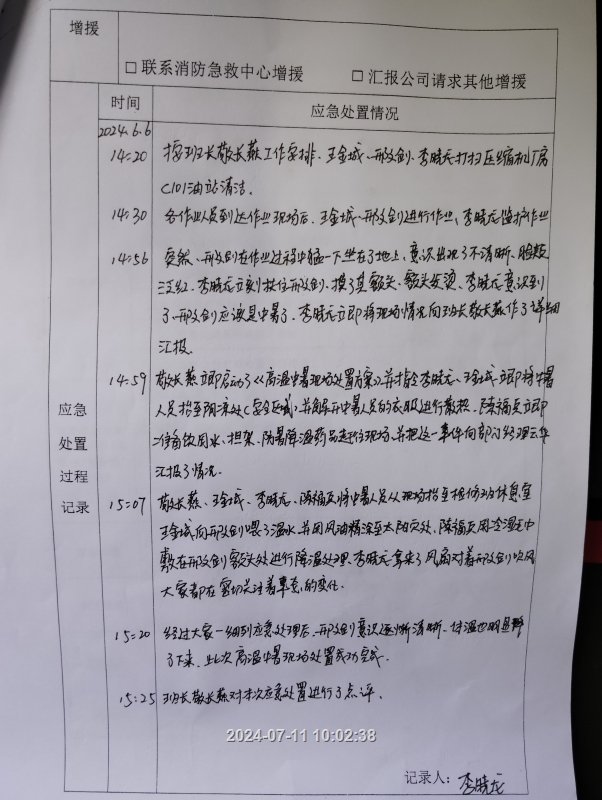 增援
□ 联系消防急救中心增援 □ 汇报公司请求其他增援
时间 应急处置情况
2024.6.6
14:20 按班长敬长燕工作安排、王金城、邢文剑、李晓龙打扫压缩机厂房
C101油站清洁.
14:30 各作业人员到达作业现场后、王金城、邢文剑进行作业,李晓龙监护作业
14:56 突然、邢文剑在作业过程中猛一下坐在了地上,意识出现了不清晰、脸颊
泛红、李晓龙立刻扶住邢文剑、摸了其额头、额头发烫、李晓龙意识到
了、邢文剑应该是中暑了、李晓龙立即将现场情况向班长敬长燕作了详细
汇报.
14:59 敬长燕立即启动了《高温中暑现场处置方案》并指令李晓龙、王金城立即将中暑
人员抬至阴凉处(安全区域)并解开中暑人员的衣服进行散热、陈福友立即
准备饮用水、担架、防暑降温药品赶往现场、并把这一事件向部门经理
汇报了情况.
应急
处置
过程
记录
15:07 敬长燕、王金城、李晓龙、陈福友将中暑人员从现场抬至检修班休息室
王金城向邢文剑喂了温水、并用风油精涂至太阳穴处、陈福友用冷湿毛巾
敷在邢文剑额头处进行降温处理、李晓龙拿来了风扇对着邢文剑吹风
大家都在密切关注着的变化.
15:20 经过大家一细列应急处理后、邢文剑意识逐渐清晰、体温也明显降
了下来、此次高温中暑现场处置成功完成.
15:25 班长敬长燕对本次应急处置进行了点评.
2024-07-11 10:02:38
记录人: 李晓龙